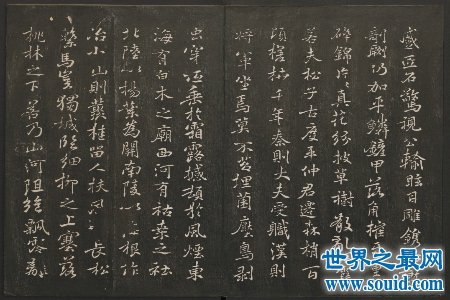 盛匠石驚視公輸眩目雕鐫
剞劂仍加平鱗鏟甲落角摧牙重
碎錦片片真花紛披草樹散亂
若夫松子古度平仲君遷森梢百
頃槎枿千年秦則大夫受職漢則
將軍坐焉莫不苔埋菌壓鳥剝
虫穿或垂於霜露撼頓於風煙東
海有白木之廟西河有枯桑之社
北陸以楊葉為關南陵以梅根作
冶小山則叢桂留人扶風則長松
繫馬豈獨城臨細柳之上塞落
桃林之下若乃山河阻絕飄零离
世界之最网